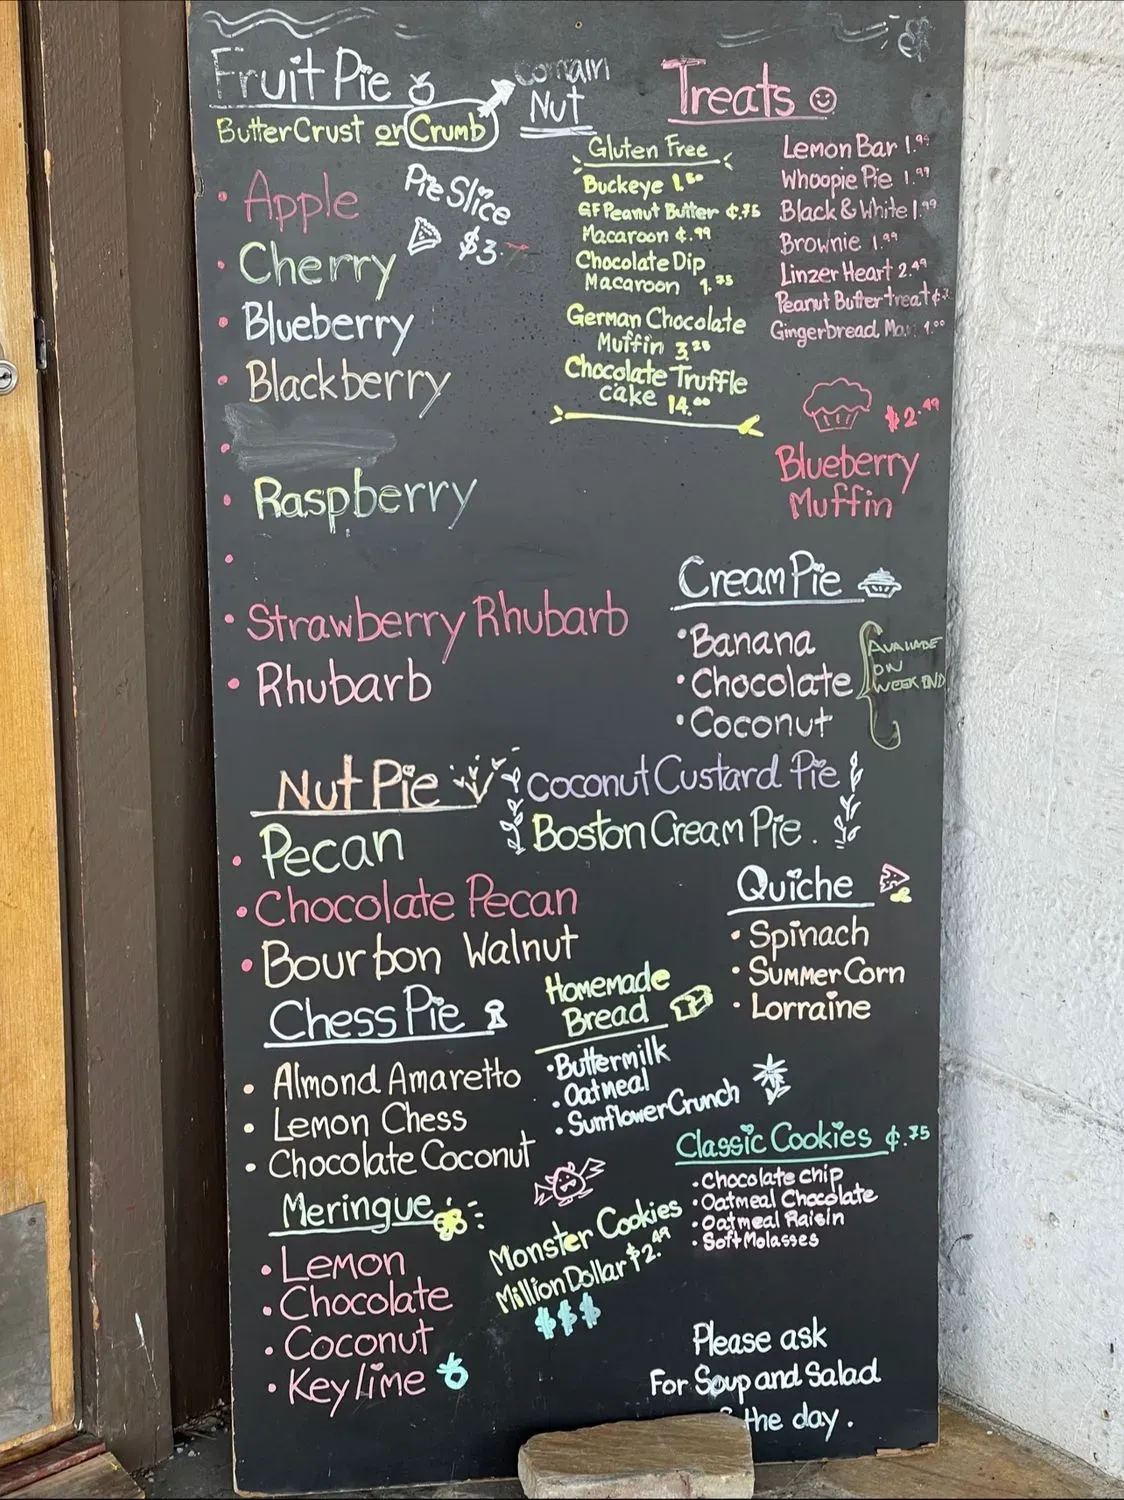 Fruit Pie
Butter Crust or Crumb
Contain
Nut
Pie Slice
$3.
• Apple
• Cherry
• Blueberry
• Blackberry
•
• Raspberry
•
• Strawberry Rhubarb
• Rhubarb
Treats
Gluten Free
Buckeye 1.50
GF Peanut Butter ¢.75
Macaroon ¢.99
Chocolate Dip
Macaroon 1.75
German Chocolate
Muffin 3.25
Chocolate Truffle
cake 14.00
Lemon Bar 1.99
Whoopie Pie 1.99
Black & White 1.99
Brownie 1.99
Linzer Heart 2.49
Peanut Butter treat
Gingerbread 1.00
$2.49
Blueberry
Muffin
Cream Pie
• Banana
• Chocolate
• Coconut
AVAILABLE
ON
WEEKEND
Coconut Custard Pie
Boston Cream Pie.
Nut Pie
• Pecan
• Chocolate Pecan
• Bourbon Walnut
Quiche
• Spinach
• Summer Corn
• Lorraine
Chess Pie
• Almond Amaretto
• Lemon Chess
• Chocolate Coconut
Homemade
Bread
• Buttermilk
• Oatmeal
• Sunflower Crunch
Classic Cookies ¢.75
• Chocolate chip
• Oatmeal Chocolate
• Oatmeal Raisin
• Soft Molasses
Meringue
• Lemon
• Chocolate
• Coconut
• Key lime
Monster Cookies
Million Dollar $2.49
$$$
Please ask
For Soup and Salad
the day.